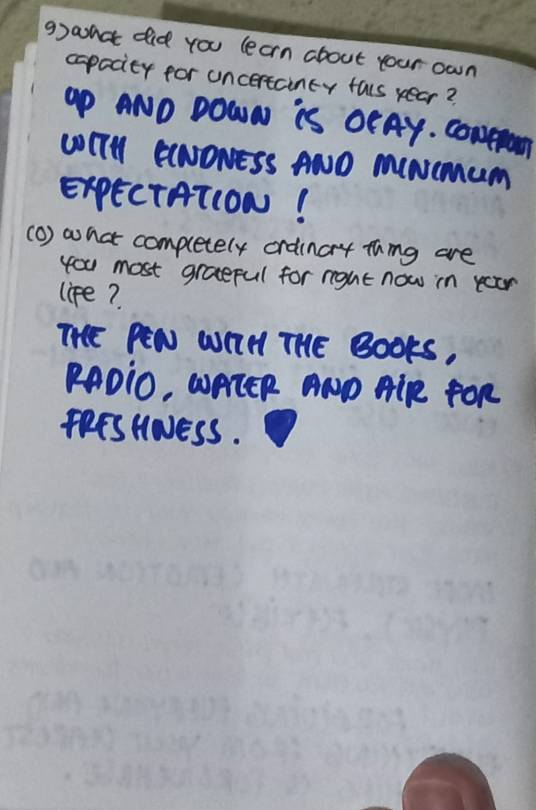 9) what did you learn about your own
capacity for uncertainty this year?
UP AND DOWN IS OKAY. CONFRONT
WITH KINDNESS AND MINIMUM
EXPECTATION!
10) what completely ordinary thing are
you most grateful for right now in your
life?
THE PEN WITH THE BOOKS,
RADIO, WATER AND AIR FOR
FRESHNESS.